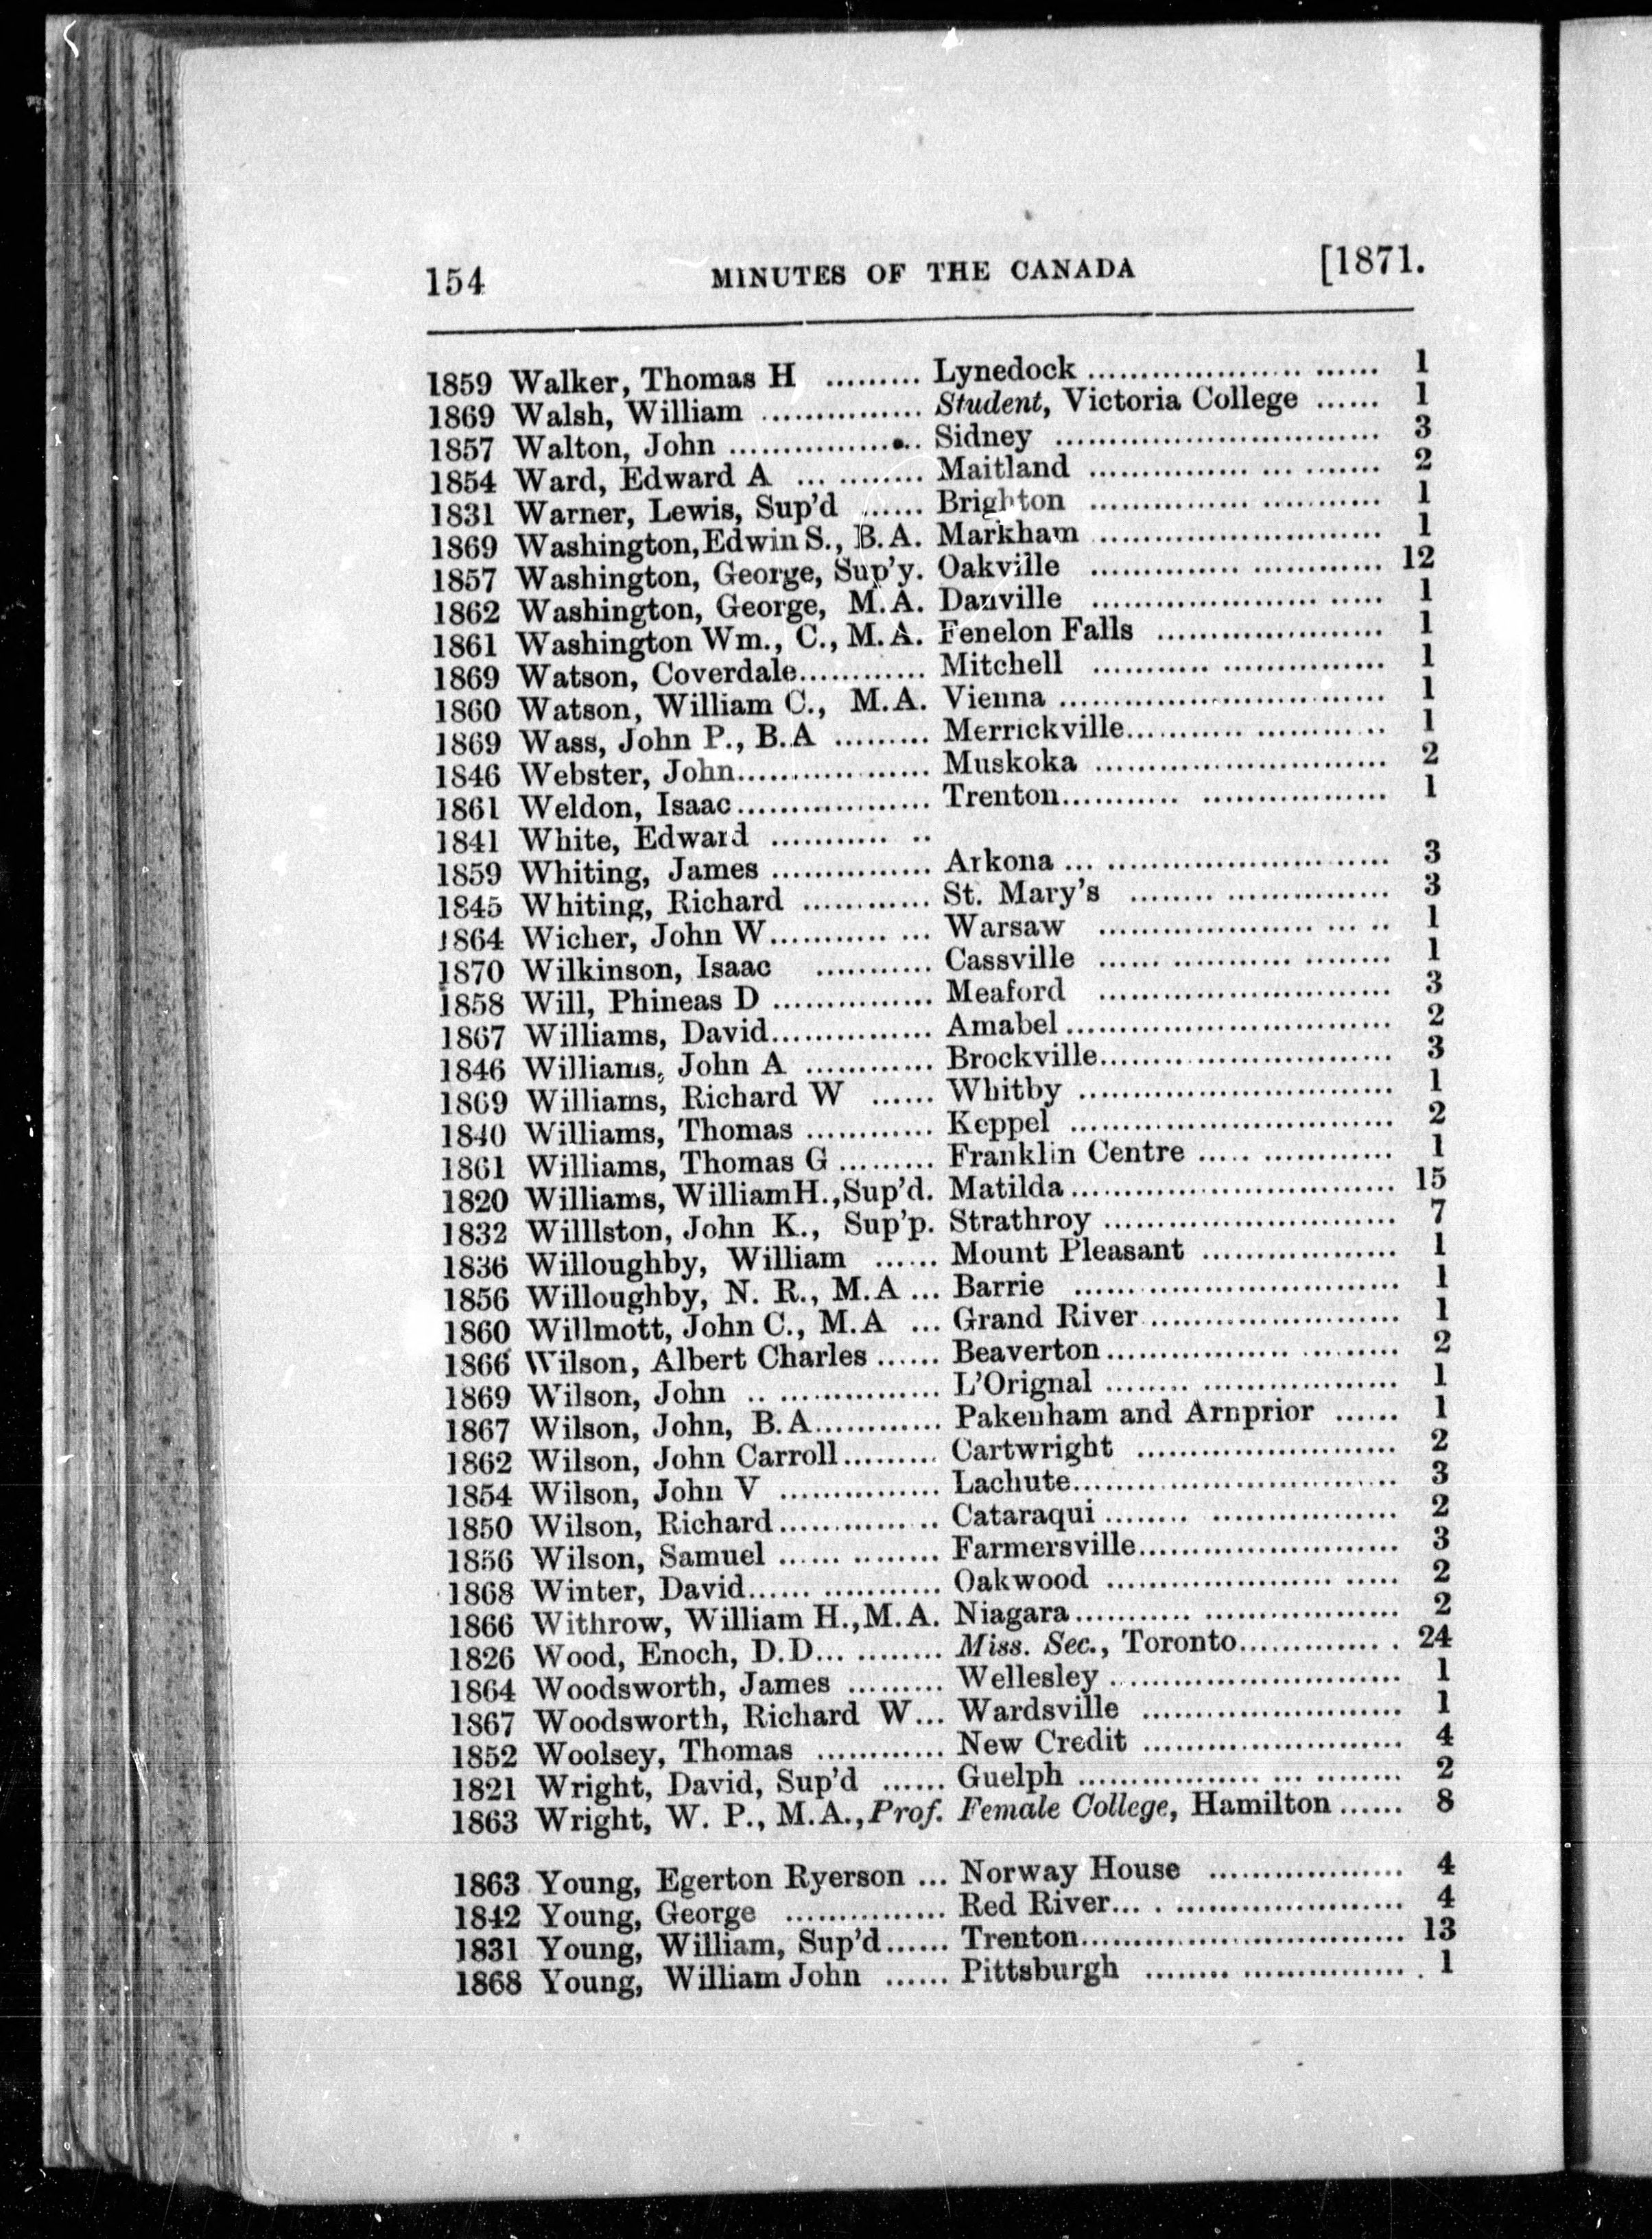 154 MINUTES OF THE CANADA [1871.
1859 Walker, Thomas H ......... Lynedock ............................ 1
1869 Walsh, William ............... Student, Victoria College ...... 1
1857 Walton, John .................. Sidney .............................. 3
1854 Ward, Edward A ............ Maitland ........................... 2
1831 Warner, Lewis, Sup'd ...... Brighton ........................... 1
1869 Washington, Edwin S., B.A. Markham .......................... 1
1857 Washington, George, Sup'y. Oakville ........................... 12
1862 Washington, George, M.A. Danville ........................... 1
1861 Washington Wm., C., M.A. Fenelon Falls ..................... 1
1869 Watson, Coverdale............ Mitchell ........................... 1
1860 Watson, William C., M.A. Vienna .............................. 1
1869 Wass, John P., B.A ......... Merrickville........................ 1
1846 Webster, John.................. Muskoka ........................... 2
1861 Weldon, Isaac.................. Trenton.............................. 1
1841 White, Edward ............. 
1859 Whiting, James ............... Arkona .............................. 3
1845 Whiting, Richard ............ St. Mary's ........................ 3
1864 Wicher, John W............... Warsaw ........................... 1
1870 Wilkinson, Isaac ........... Cassville ........................... 1
1858 Will, Phineas D ............... Meaford ........................... 3
1867 Williams, David............... Amabel .............................. 2
1846 Williams, John A ............ Brockville........................... 3
1869 Williams, Richard W ...... Whitby .............................. 1
1840 Williams, Thomas ............ Keppel .............................. 2
1861 Williams, Thomas G ......... Franklin Centre .................. 1
1820 Williams, William H., Sup'd. Matilda .............................. 15
1832 Willlston, John K., Sup'p. Strathroy ........................... 7
1836 Willoughby, William ...... Mount Pleasant .................. 1
1856 Willoughby, N. R., M.A ... Barrie .............................. 1
1860 Willmott, John C., M.A ... Grand River ........................ 1
1866 Wilson, Albert Charles ...... Beaverton ........................... 2
1869 Wilson, John .................. L'Orignal ........................... 1
1867 Wilson, John, B.A............ Pakenham and Arnprior ...... 1
1862 Wilson, John Carroll......... Cartwright ........................ 2
1854 Wilson, John V ............... Lachute.............................. 3
1850 Wilson, Richard............... Cataraqui ........................... 2
1856 Wilson, Samuel ............... Farmersville........................ 3
1868 Winter, David.................. Oakwood ........................... 2
1866 Withrow, William H., M.A. Niagara.............................. 2
1826 Wood, Enoch, D.D............ Miss. Sec., Toronto............... 24
1864 Woodsworth, James ......... Wellesley ........................... 1
1867 Woodsworth, Richard W... Wardsville ........................ 1
1852 Woolsey, Thomas ............ New Credit ........................ 4
1821 Wright, David, Sup'd ...... Guelph .............................. 2
1863 Wright, W. P., M.A., Prof. Female College, Hamilton ...... 8
1863 Young, Egerton Ryerson ... Norway House .................. 4
1842 Young, George ............... Red River........................... 4
1831 Young, William, Sup'd...... Trenton.............................. 13
1868 Young, William John ...... Pittsburgh ........................ 1